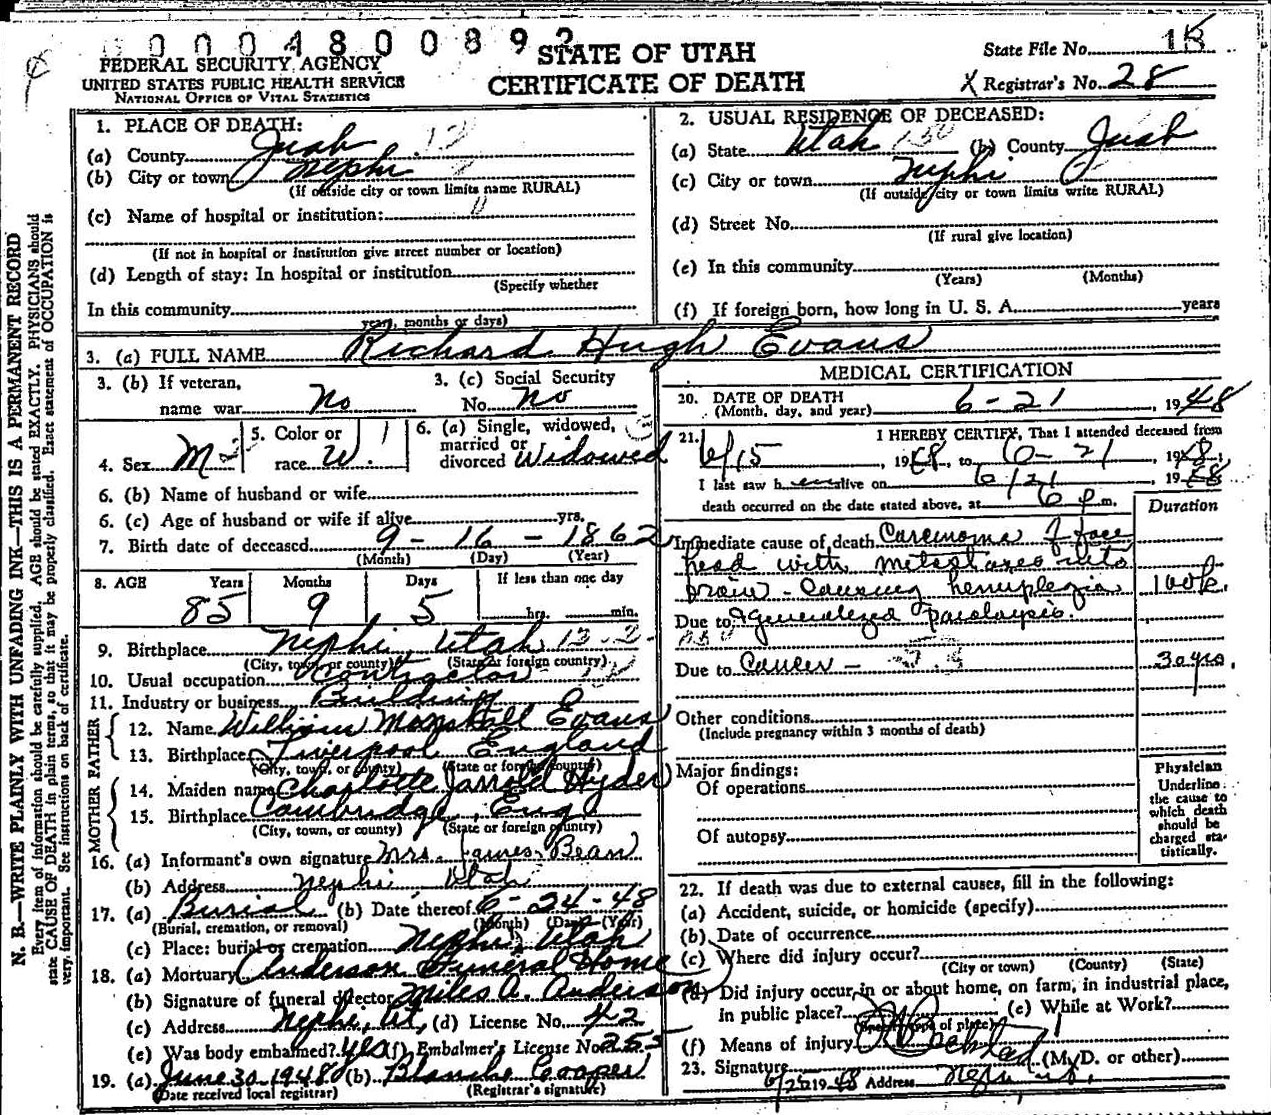 0 0 0 0 4 8 0 0 8 9 2
STATE OF UTAH
CERTIFICATE OF DEATH
FEDERAL SECURITY AGENCY
UNITED STATES PUBLIC HEALTH SERVICE
NATIONAL OFFICE OF VITAL STATISTICS
State File No.
X Registrar's No. 28
N. B.—WRITE PLAINLY WITH UNFADING INK—THIS IS A PERMANENT RECORD
Every item of information should be carefully supplied. AGE should be stated EXACTLY. PHYSICIANS should
state CAUSE OF DEATH in plain terms, so that it may be properly classified. Exact statement of OCCUPATION is
very important. See instructions on back of certificate.
1. PLACE OF DEATH:
(a) County Juab
(b) City or town Nephi
(If outside city or town limits name RURAL)
(c) Name of hospital or institution:
(If not in hospital or institution give street number or location)
(d) Length of stay: In hospital or institution
(Specify whether
In this community
years, months or days)
2. USUAL RESIDENCE OF DECEASED:
(a) State Utah (b) County Juab
(c) City or town Nephi
(If outside city or town limits write RURAL)
(d) Street No.
(If rural give location)
(e) In this community
(Years) (Months)
(f) If foreign born, how long in U. S. A. years
3. (a) FULL NAME Richard Hugh Evans
3. (b) If veteran, name war No
3. (c) Social Security No. No
4. Sex M
5. Color or race W.
6. (a) Single, widowed, married or divorced Widowed
6. (b) Name of husband or wife
6. (c) Age of husband or wife if alive yrs.
7. Birth date of deceased 9 - 16 - 1862
(Month) (Day) (Year)
8. AGE Years Months Days If less than one day
85 9 5 hrs. min.
9. Birthplace Nephi, Utah
(City, town, or county) (State or foreign country)
10. Usual occupation Contractor
11. Industry or business Building
FATHER
12. Name William Monshall Evans
13. Birthplace Liverpool England
(City, town, or county) (State or foreign country)
MOTHER
14. Maiden name Charlotte Jarrold Hyder
15. Birthplace Cambridge, Eng
(City, town, or county) (State or foreign country)
16. (a) Informant's own signature Mrs. James Bean
(b) Address Nephi Utah
17. (a) Burial (b) Date thereof 6-24-48
(Burial, cremation, or removal) (Month) (Day) (Year)
(c) Place: burial or cremation Nephi, Utah
18. (a) Mortuary Anderson Funeral Home
(b) Signature of funeral director Miles A. Anderson
(c) Address Nephi, Ut, (d) License No. 42
(e) Was body embalmed? Yes (f) Embalmer's License No. 255
19. (a) June 30 1948 (b) Blanche Cooper
(Date received local registrar) (Registrar's signature)
MEDICAL CERTIFICATION
20. DATE OF DEATH
(Month, day, and year) 6-21, 1948
21. I HEREBY CERTIFY, That I attended deceased from
6/15, 1948, to 6-21, 1948;
I last saw h alive on 6/21, 1948
death occurred on the date stated above, at 6 p m.
Duration
Immediate cause of death Carcinoma of fore
head with metastases into
brain - causing hemiplegia
Due to & generalized paralysis.
Due to Cancer - 30 yrs.
Other conditions
(Include pregnancy within 3 months of death)
Major findings:
Of operations
Of autopsy
Physician
Underline
the cause to
which death
should be
charged sta-
tistically.
22. If death was due to external causes, fill in the following:
(a) Accident, suicide, or homicide (specify)
(b) Date of occurrence
(c) Where did injury occur?
(City or town) (County) (State)
(d) Did injury occur in or about home, on farm, in industrial place,
in public place? (e) While at Work?
(Specify type of place)
(f) Means of injury
23. Signature (M. D. or other)
1948 Address Nephi, Ut.